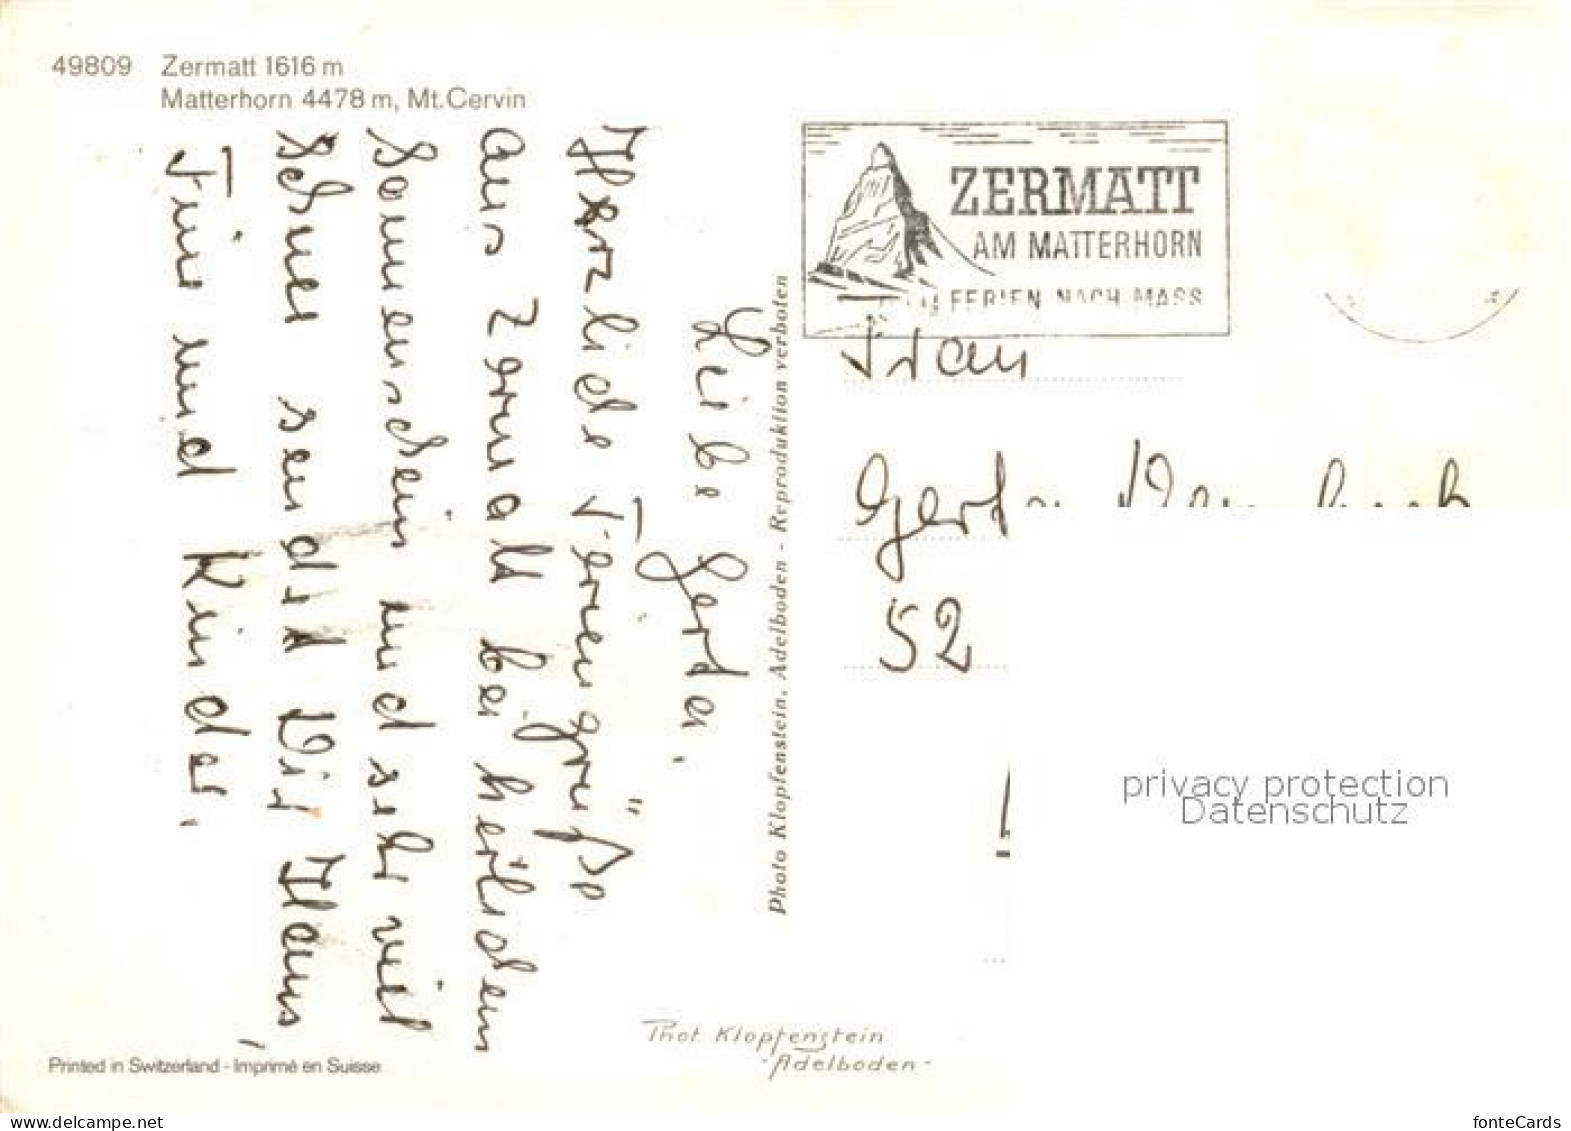 49809 Zermatt 1616 m
Matterhorn 4478 m, Mt. Cervin
Liebe Gerda,
Herzliche Feriengrüße
aus Zermatt bei herlichem
Sonnenschein und sehr viel
Schnee sendet Dir Hans,
Tine und Kinder.
Photo Klopfenstein, Adelboden - Reproduktion verboten
ZERMATT
AM MATTERHORN
FERIEN NACH MASS
Frau
Gerda
52
privacy protection
Datenschutz
Phot. Klopfenstein
- Adelboden -
Printed in Switzerland - Imprimé en Suisse
delcampe.net
fonteCards